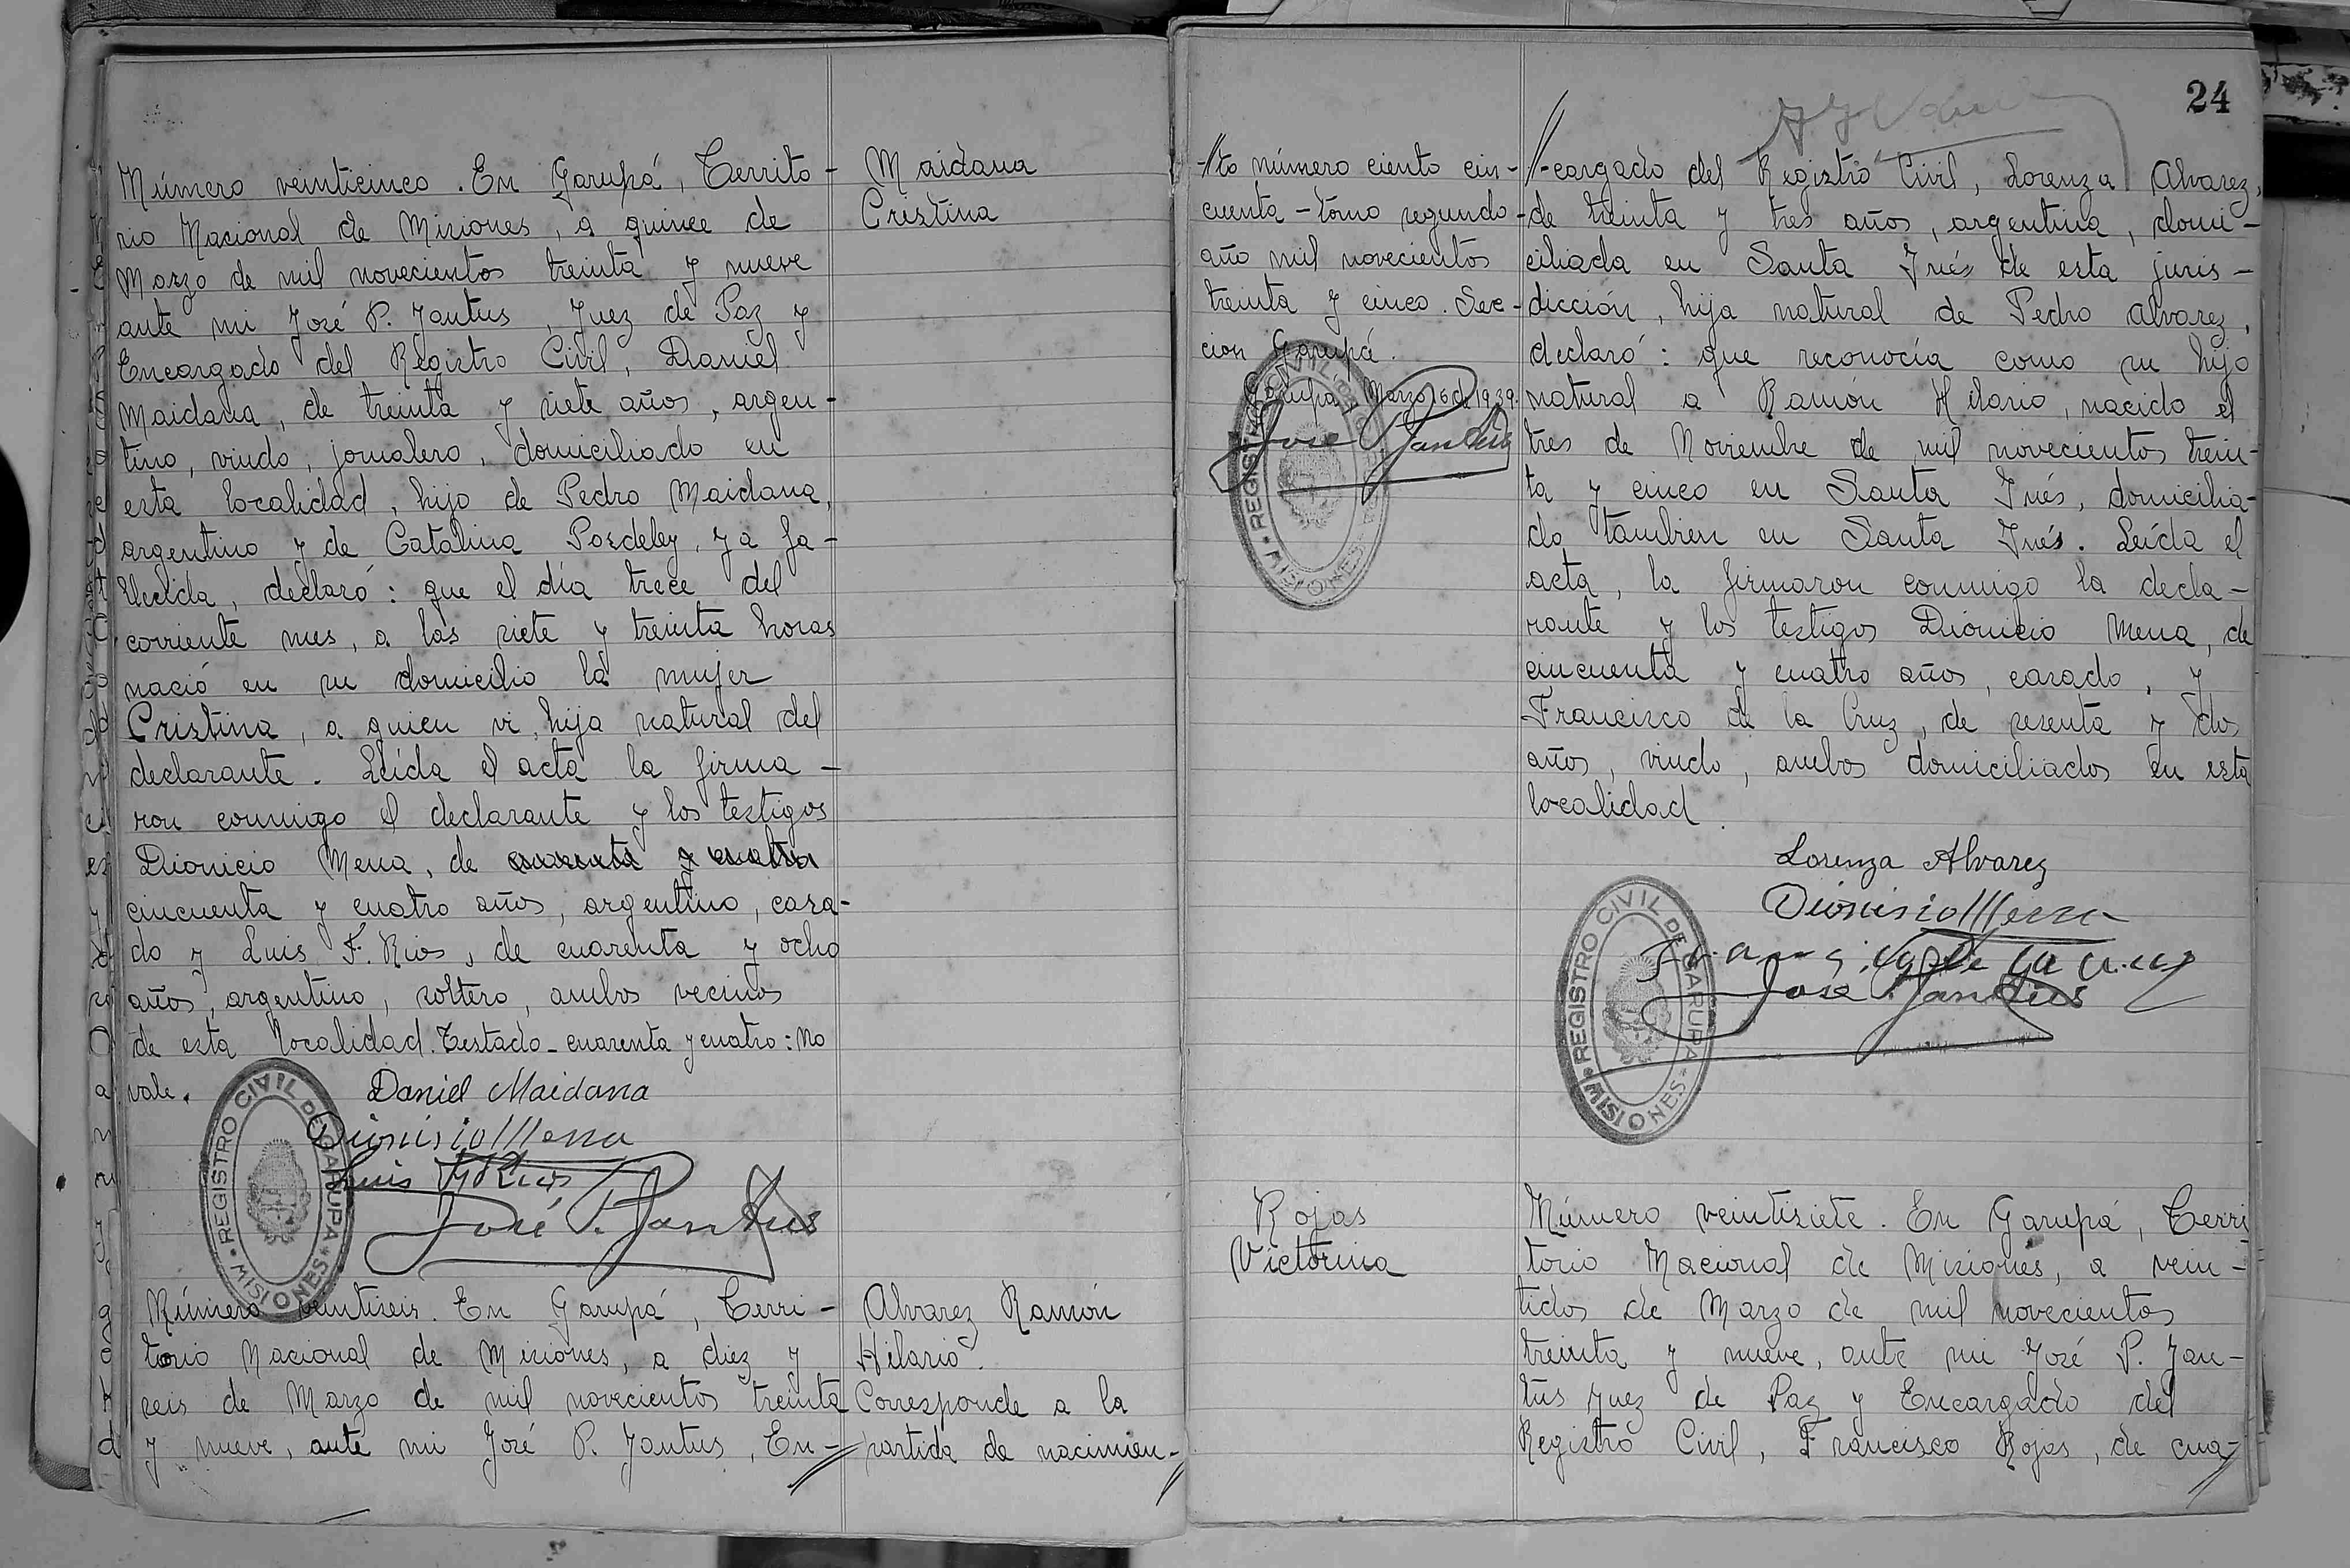 Número veinticinco. En Garupá, Territo-
rio Nacional de Misiones, a quince de
Marzo de mil novecientos treinta y nueve
ante mi José P. Jantus, Juez de Paz y
Encargado del Registro Civil, Daniel
Maidana, de treinta y siete años, argen-
tino, viudo, jornalero, domiciliado en
esta localidad, hijo de Pedro Maidana,
argentino y de Catalina Posdeley, ya fa-
llecida, declaró: que el día trece del
corriente mes, a las siete y treinta horas
nació en su domicilio la mujer
Cristina, a quien vi, hija natural del
declarante. Leída el acta la firma-
ron conmigo el declarante y los testigos
Dionicio Mena, de cuarenta y cuatro
cincuenta y cuatro años, argentino, casa-
do y Luis F. Rios, de cuarenta y ocho
años, argentino, soltero, ambos vecinos
de esta localidad. Testado_cuarenta y cuatro: No
vale.
Daniel Maidana
Dionisio Mena
Luis F. Rios
José P. Jantus
REGISTRO CIVIL DE GARUPA
MISIONES
Maidana
Cristina
Número veintiseis. En Garupá, Terri-
torio Nacional de Misiones, a diez y
seis de Marzo de mil novecientos treinta
y nueve, ante mi José P. Jantus, En-//
Alvarez Ramón
Hilario.
Corresponde a la
partida de nacimien-//
24
//to número ciento cin-
cuenta - tomo segundo -
año mil novecientos
treinta y cinco. Sec-
cion Garupá.
Garupá, Marzo 16 de 1939.
José P. Jantus
REGISTRO CIVIL DE GARUPA
MISIONES
//-cargado del Registro Civil, Lorenza Alvarez,
de treinta y tres años, argentina, domi-
ciliada en Santa Inés de esta juris-
dicción, hija natural de Pedro Alvarez,
declaró: que reconocía como su hijo
natural a Ramón Hilario, nacido el
tres de Noviembre de mil novecientos trein-
ta y cinco en Santa Inés, domicilia-
do tambien en Santa Inés. Leída el
acta, la firmaron conmigo la decla-
rante y los testigos Dionicio Mena, de
cincuenta y cuatro años, casado, y
Francisco de la Cruz, de sesenta y dos
años, viudo, ambos domiciliados en esta
localidad.
Lorenza Alvarez
Dionisio Mena
Francisco de la Cruz
José P. Jantus
REGISTRO CIVIL DE GARUPA
MISIONES
Rojas
Victorina
Número veintisiete. En Garupá, Terri
torio Nacional de Misiones, a vein-
tidos de Marzo de mil novecientos
treinta y nueve, ante mi José P. Jan-
tus Juez de Paz y Encargado del
Registro Civil, Francisco Rojas, de cua-//